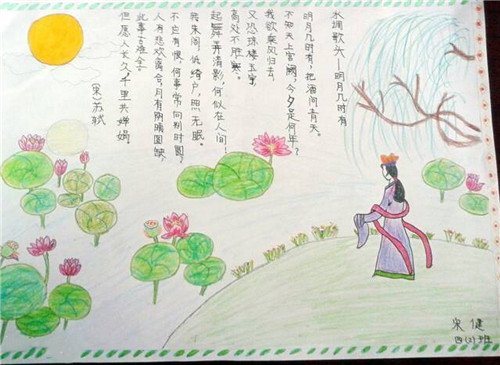 水调歌头——明月几时有
明月几时有,把酒问青天。
不知天上宫阙,今夕是何年?
我欲乘风归去,
又恐琼楼玉宇,
高处不胜寒。
起舞弄清影,何似在人间。
转朱阁,低绮户,照无眠。
不应有恨,何事常向别时圆。
人有悲欢离合,月有阴晴圆缺,
此事古难全。
但愿人长久,千里共婵娟。
宋 苏轼
宋健
四(2)班